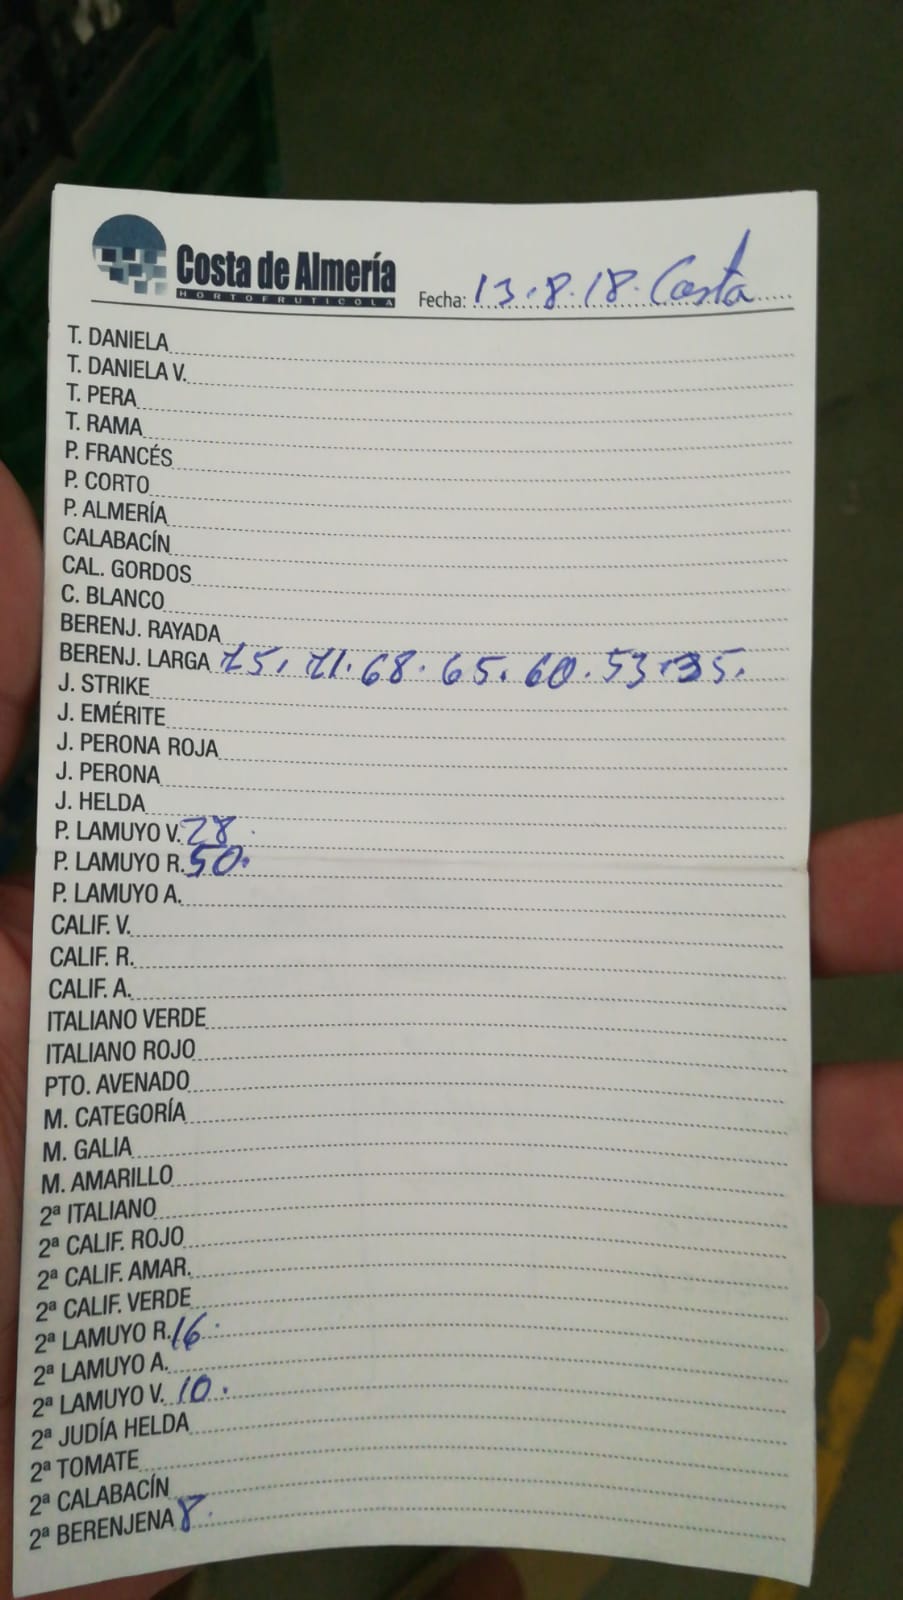 Costa de Almería
HORTOFRUTICOLA
Fecha: 13.8.18. Costa
T. DANIELA
T. DANIELA V.
T. PERA
T. RAMA
P. FRANCÉS
P. CORTO
P. ALMERÍA
CALABACÍN
CAL. GORDOS
C. BLANCO
BERENJ. RAYADA
BERENJ. LARGA 75. 71. 68. 65. 60. 53. 35.
J. STRIKE
J. EMÉRITE
J. PERONA ROJA
J. PERONA
J. HELDA
P. LAMUYO V. 28.
P. LAMUYO R. 50.
P. LAMUYO A.
CALIF. V.
CALIF. R.
CALIF. A.
ITALIANO VERDE
ITALIANO ROJO
PTO. AVENADO
M. CATEGORÍA
M. GALIA
M. AMARILLO
2ª ITALIANO
2ª CALIF. ROJO
2ª CALIF. AMAR.
2ª CALIF. VERDE
2ª LAMUYO R. 16.
2ª LAMUYO A.
2ª LAMUYO V. 10.
2ª JUDÍA HELDA
2ª TOMATE
2ª CALABACÍN
2ª BERENJENA 8.